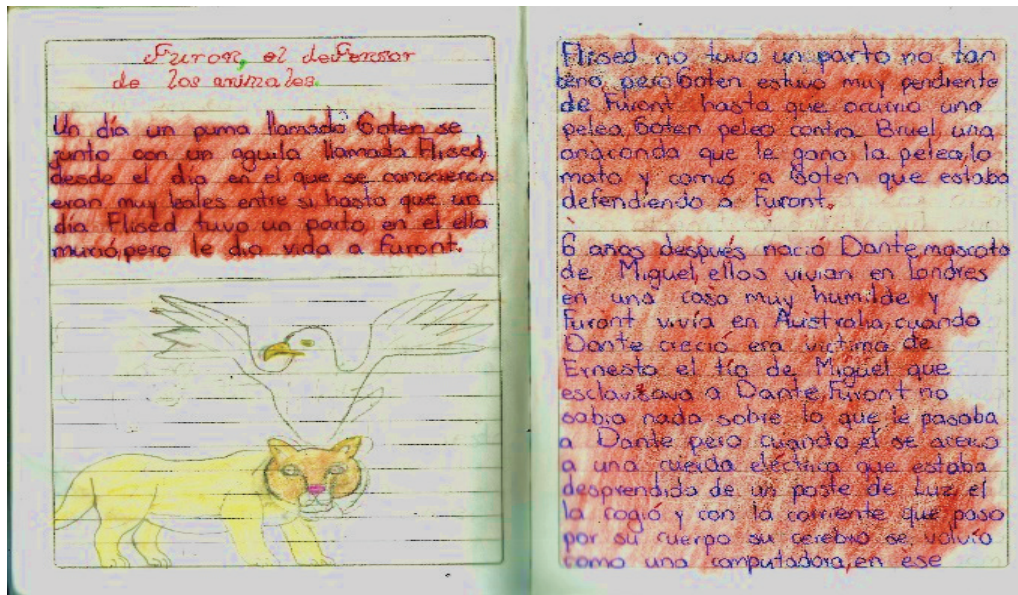 Furont, el defensor
de los animales.
Un día un puma llamado Goten se
junto con un aguila llamada Flised,
desde el día en el que se conocieron
eran muy leales entre si hasta que un
día Flised tuvo un parto en el ella
murió, pero le dio vida a Furont.
Flised no tuvo un parto no tan
beno, pero Goten estuvo muy pendiente
de Furont hasta que ocurrio una
pelea, Goten peleo contra Bruel, una
anaconda que le gano la pelea, lo
mato y comió a Goten que estaba
defendiendo a Furont.
6 años después nació Dante, mascota
de Miguel, ellos vivian en Londres
en una casa muy humilde y
Furont vivía en Australia, cuando
Dante creció era victima de
Ernesto el tío de Miguel que
esclavisava a Dante, Furont no
sabia nada sobre lo que le pasaba
a Dante pero cuando el se acerco
a una cuerda eléctrica que estaba
desprendida de un poste de Luz, el
la cogió y con la corriente que paso
por su cuerpo su cerebro se volvio
como una computadora, en ese